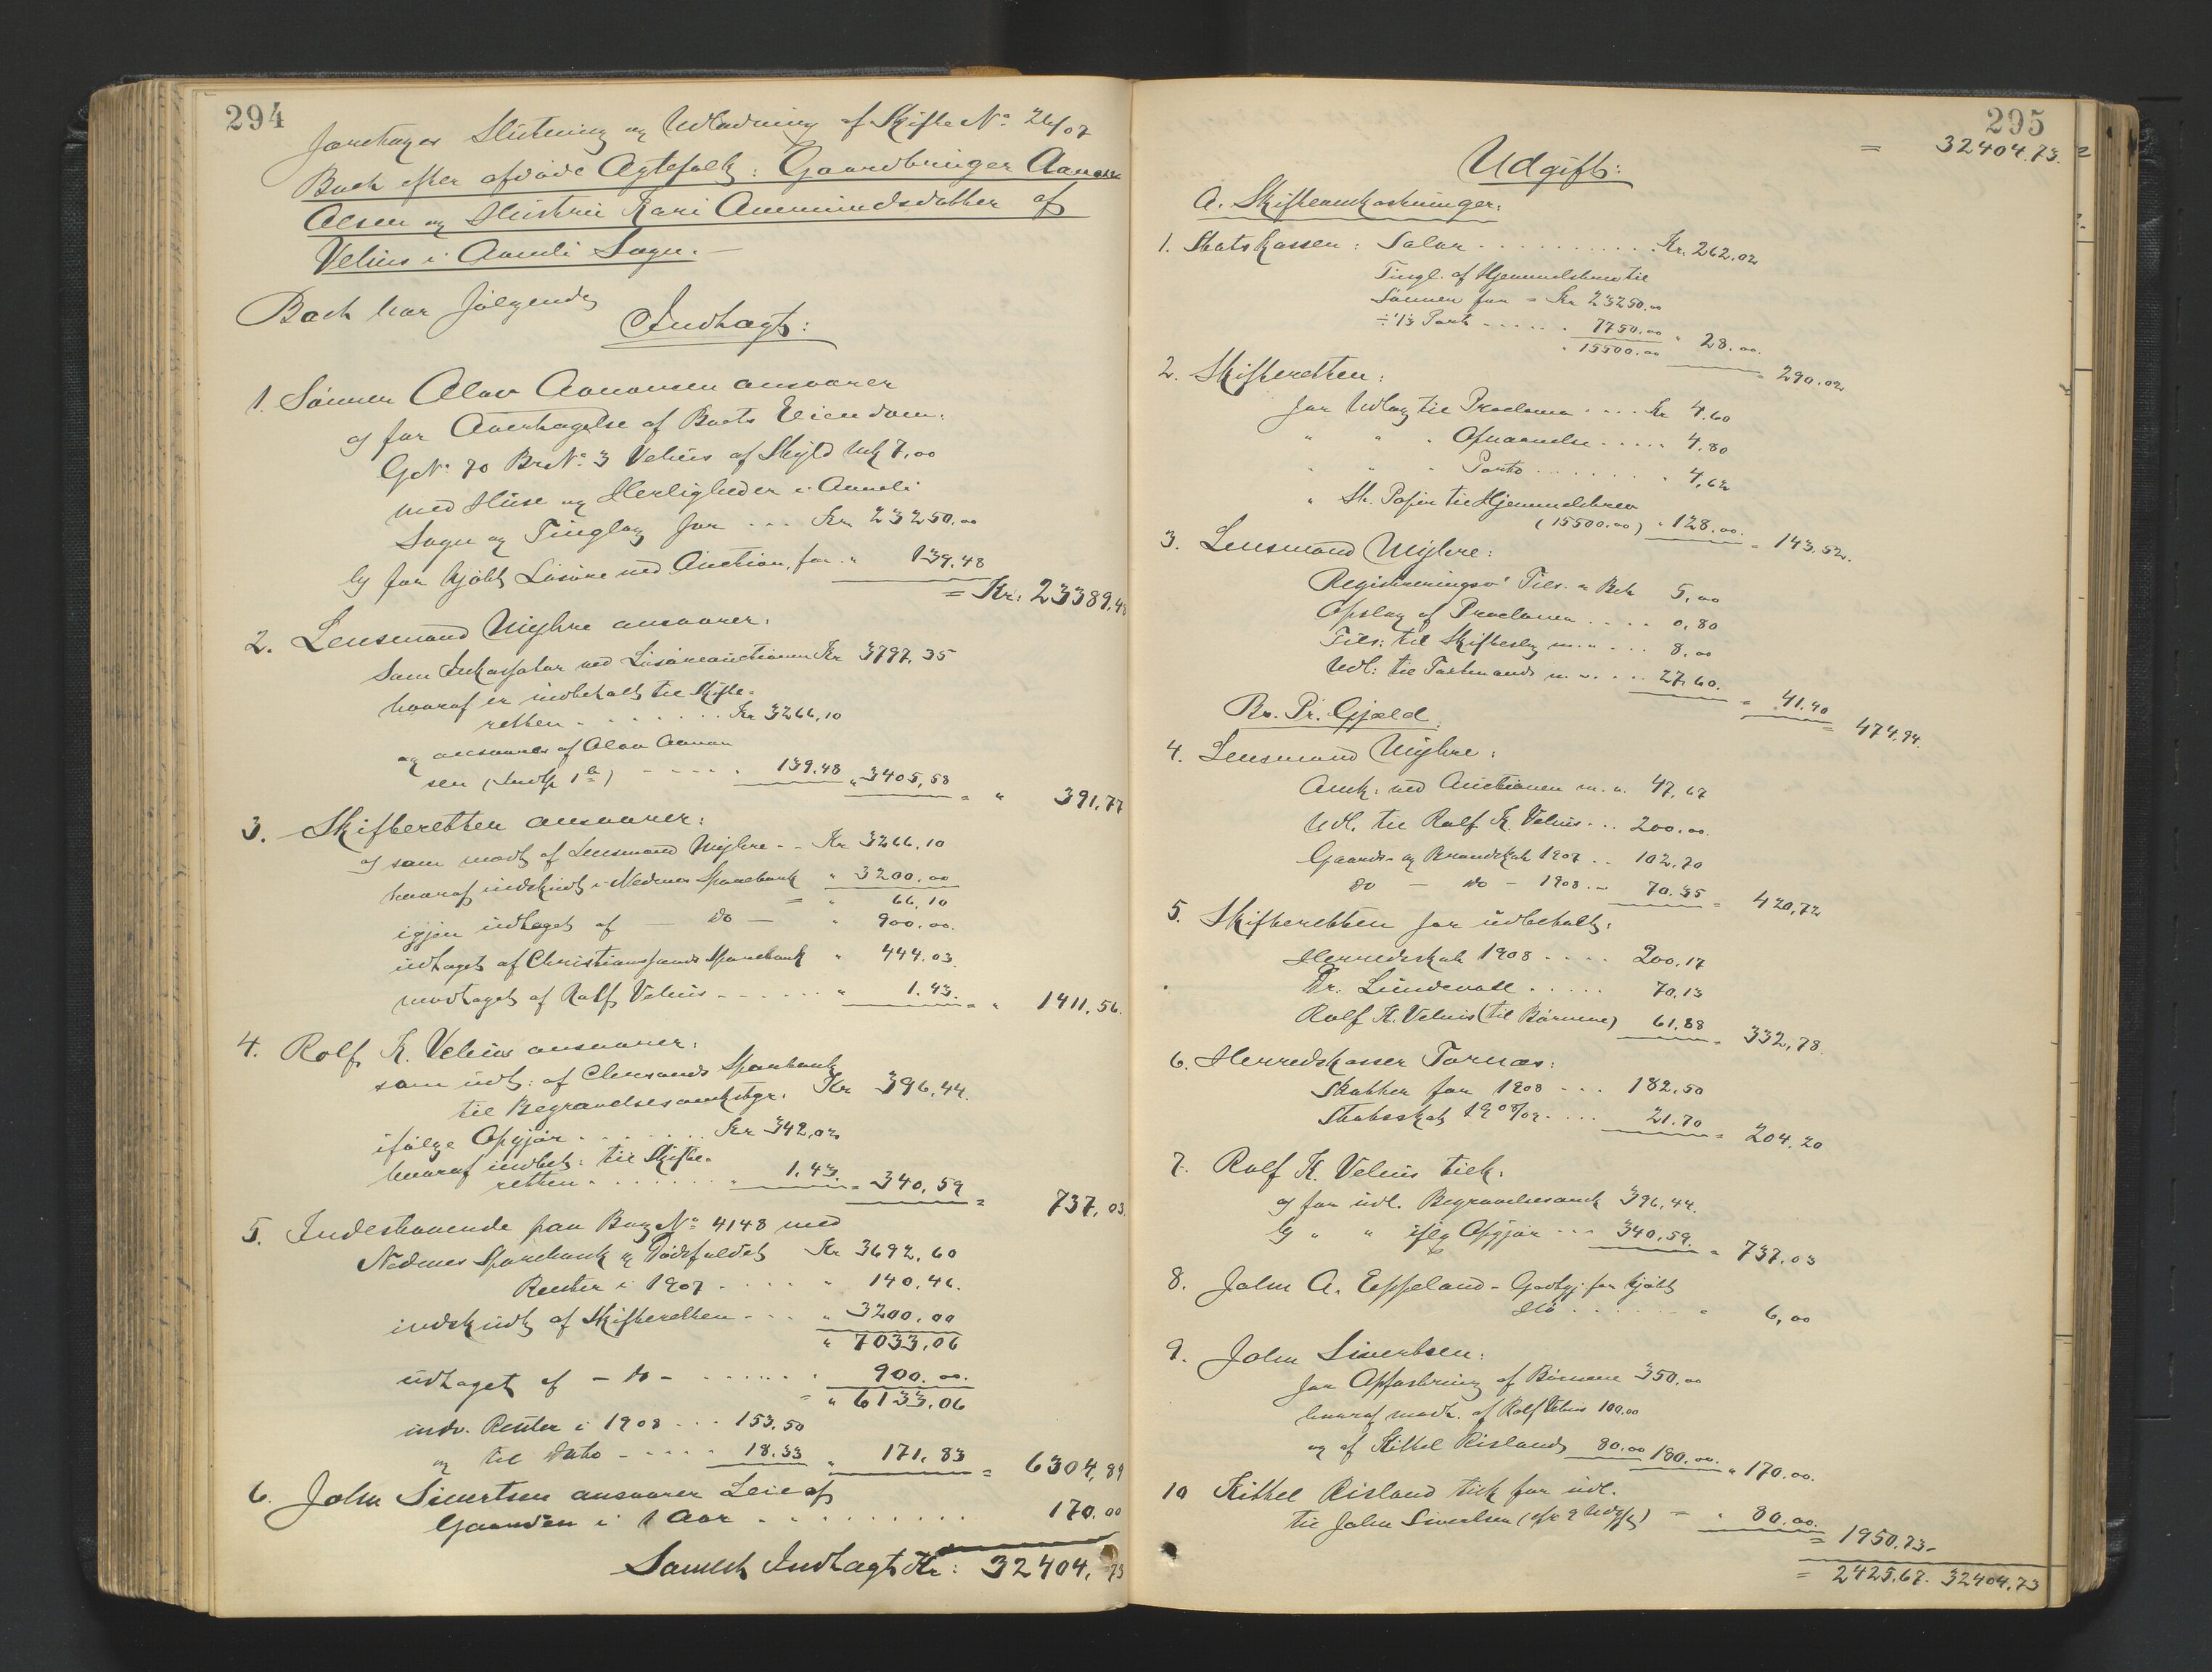 294
Foretages Slutning og Udlodning af Skifte No. 24/07
Boet efter afdøde Ægtefolk: Gaardbruger Aanon
Olsen og Hustru Kari Ommundsdatter af
Vehus i Aamli Sogn. —
Boet har følgende
Indtægt:
1. Sønnen Olav Aanonsen ansvarer
a) for Overtagelse af Boets Eiendom:
GNo. 70 BrNo. 3 Vehus af Skyld Mk 7,00
med Huse og Herligheder i Aamli
Sogn og Tinglag for ... Kr. 23250.00
b) for kjøbt Løsøre ved Auction, for. " 139.48
= Kr: 23389.48
2. Lensmand Myhre ansvarer:
Som Inkassator ved Løsøreauctionen Kr 3797.35
hvoraf er indbetalt til Skifte-
retten - . . . . . . Kr 3266,10
og ansvares af Olav Aanon
sen (Indtp 1 b) - - - - . 139.48 " 3405,58
= " 391.77
3. Skifteretten ansvarer:
a) som modt. af Lensmand Myhre - - Kr 3266.10
hvoraf indskudt i Nedenes Sparebank " 3200.00
= " 66.10
igjen udtaget af — do — " 900.00.
udtaget af Christianssands Sparebank " 444.03.
modtaget af Rolf Vehus - . . . . . " 1.43. = " 1411,56.
4. Rolf K. Vehus ansvarer:
som udt: af Chrsands Sparebank
til Begravelsesomkstgr. Kr 396,44.
ifølge Opgjør . . . . . . Kr 342,02
hvoraf indbet: til Skifte-
retten - . . . . . . " 1.43. = 340,59
= 737,03
5. Indestaaende paa Bog No. 4148 med
Nedenes Sparebank v Dødsfaldet Kr 3692,60
Renter i 1907 - . . . . " 140.46.
indskudt af Skifteretten - . . " 3200.00
" 7033.06
udtaget af - do - . . . . . . " 900.00.
= " 6133.06
indv. Renter i 1908 - . . 153.50
og til Dato - - - - . 18.33 " 171.83 = 6304,89
6. John Sivertsen ansvarer Leie af
Gaarden i 1 Aar . . . . . . . . . 170.00
Samlet Indtægt Kr: 32404,73
295
= 32404.73.
Udgift:
A. Skifteomkostninger:
1. Statskassen: Salær . . . . . . . . . . Kr. 262.02
Tingl. af Hjemmelsbrev til
Sønnen for = Kr 23250.00
÷ 1/3 Part - . . . . . 7750.00
" 15500.00 " 28.00.
= 290.02
2. Skifteretten:
for Udlæg til Proclama . . . . Kr 4.60
" " " Opnævnelse . . . . . 4.80
" " " Porto . . . . . . . " 4,62
" St. Papir til Hjemmelsbrev
(15500.00) " 128.00. = 143.52.
3. Lensmand Myhre:
Registreringsv. Tils. a Bek 5.00
Opslag af Proclama . . . . 0,80
Tils: til Skiftesls m.v. . . . 8,00
Udl: til Takstmænd m.v. . . . 27.60. = 41.40
= 474.94.
B. Pr. Gjæld
4. Lensmand Myhre:
Omk: ved Auctionen m.v. 47,67
Udl. til Rolf K. Vehus . . . 200.00.
Gaards- og Brandskat 1907 . . 102.70
do — do - 1908 . . 70.35 = 420,72
5. Skifteretten for udbetalt:
Herredsskat 1908 . . . . 200.17
Dr. Lundevall . . . . . 70,13
Rolf K. Vehus (til Børnene) 61.88 = 332,78.
6. Herredskasser Tornæs:
Skatter for 1908 - . . 182.50
Statsskat 1908/09 . . . . 21.70 = 204.20
7. Rolf K. Vehus tilk:
a) for udl. Begravelsesomk 396,44.
b) " " iflg Opgjør . . . 340,59. = 737,03
8. John A. Eppeland - Godtgj. for kjøbt
Hø . . . . . . . " 6,00
9. John Sivertsen:
for Opfostring af Børnene 350,00
hvoraf modt. af Rolf Vehus 100.00
og af Kittel Risland 80.00 180.00. " 170.00.
10 Kittel Risland tilk for udl.
til John Sivertsen (cfr 9 Udgift) = " 80.00.
= 1950.73 -
= 2425,67. 32404,73